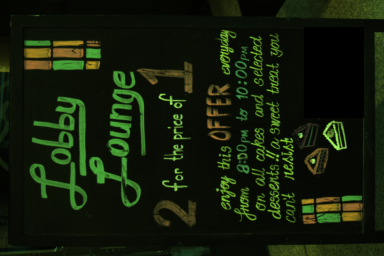 Lobby
Lounge
2 for the price of 1
enjoy this OFFER everyday
from 8:00PM to 10:00PM
on all cakes and selected
desserts!! a sweet treat you
can't resist